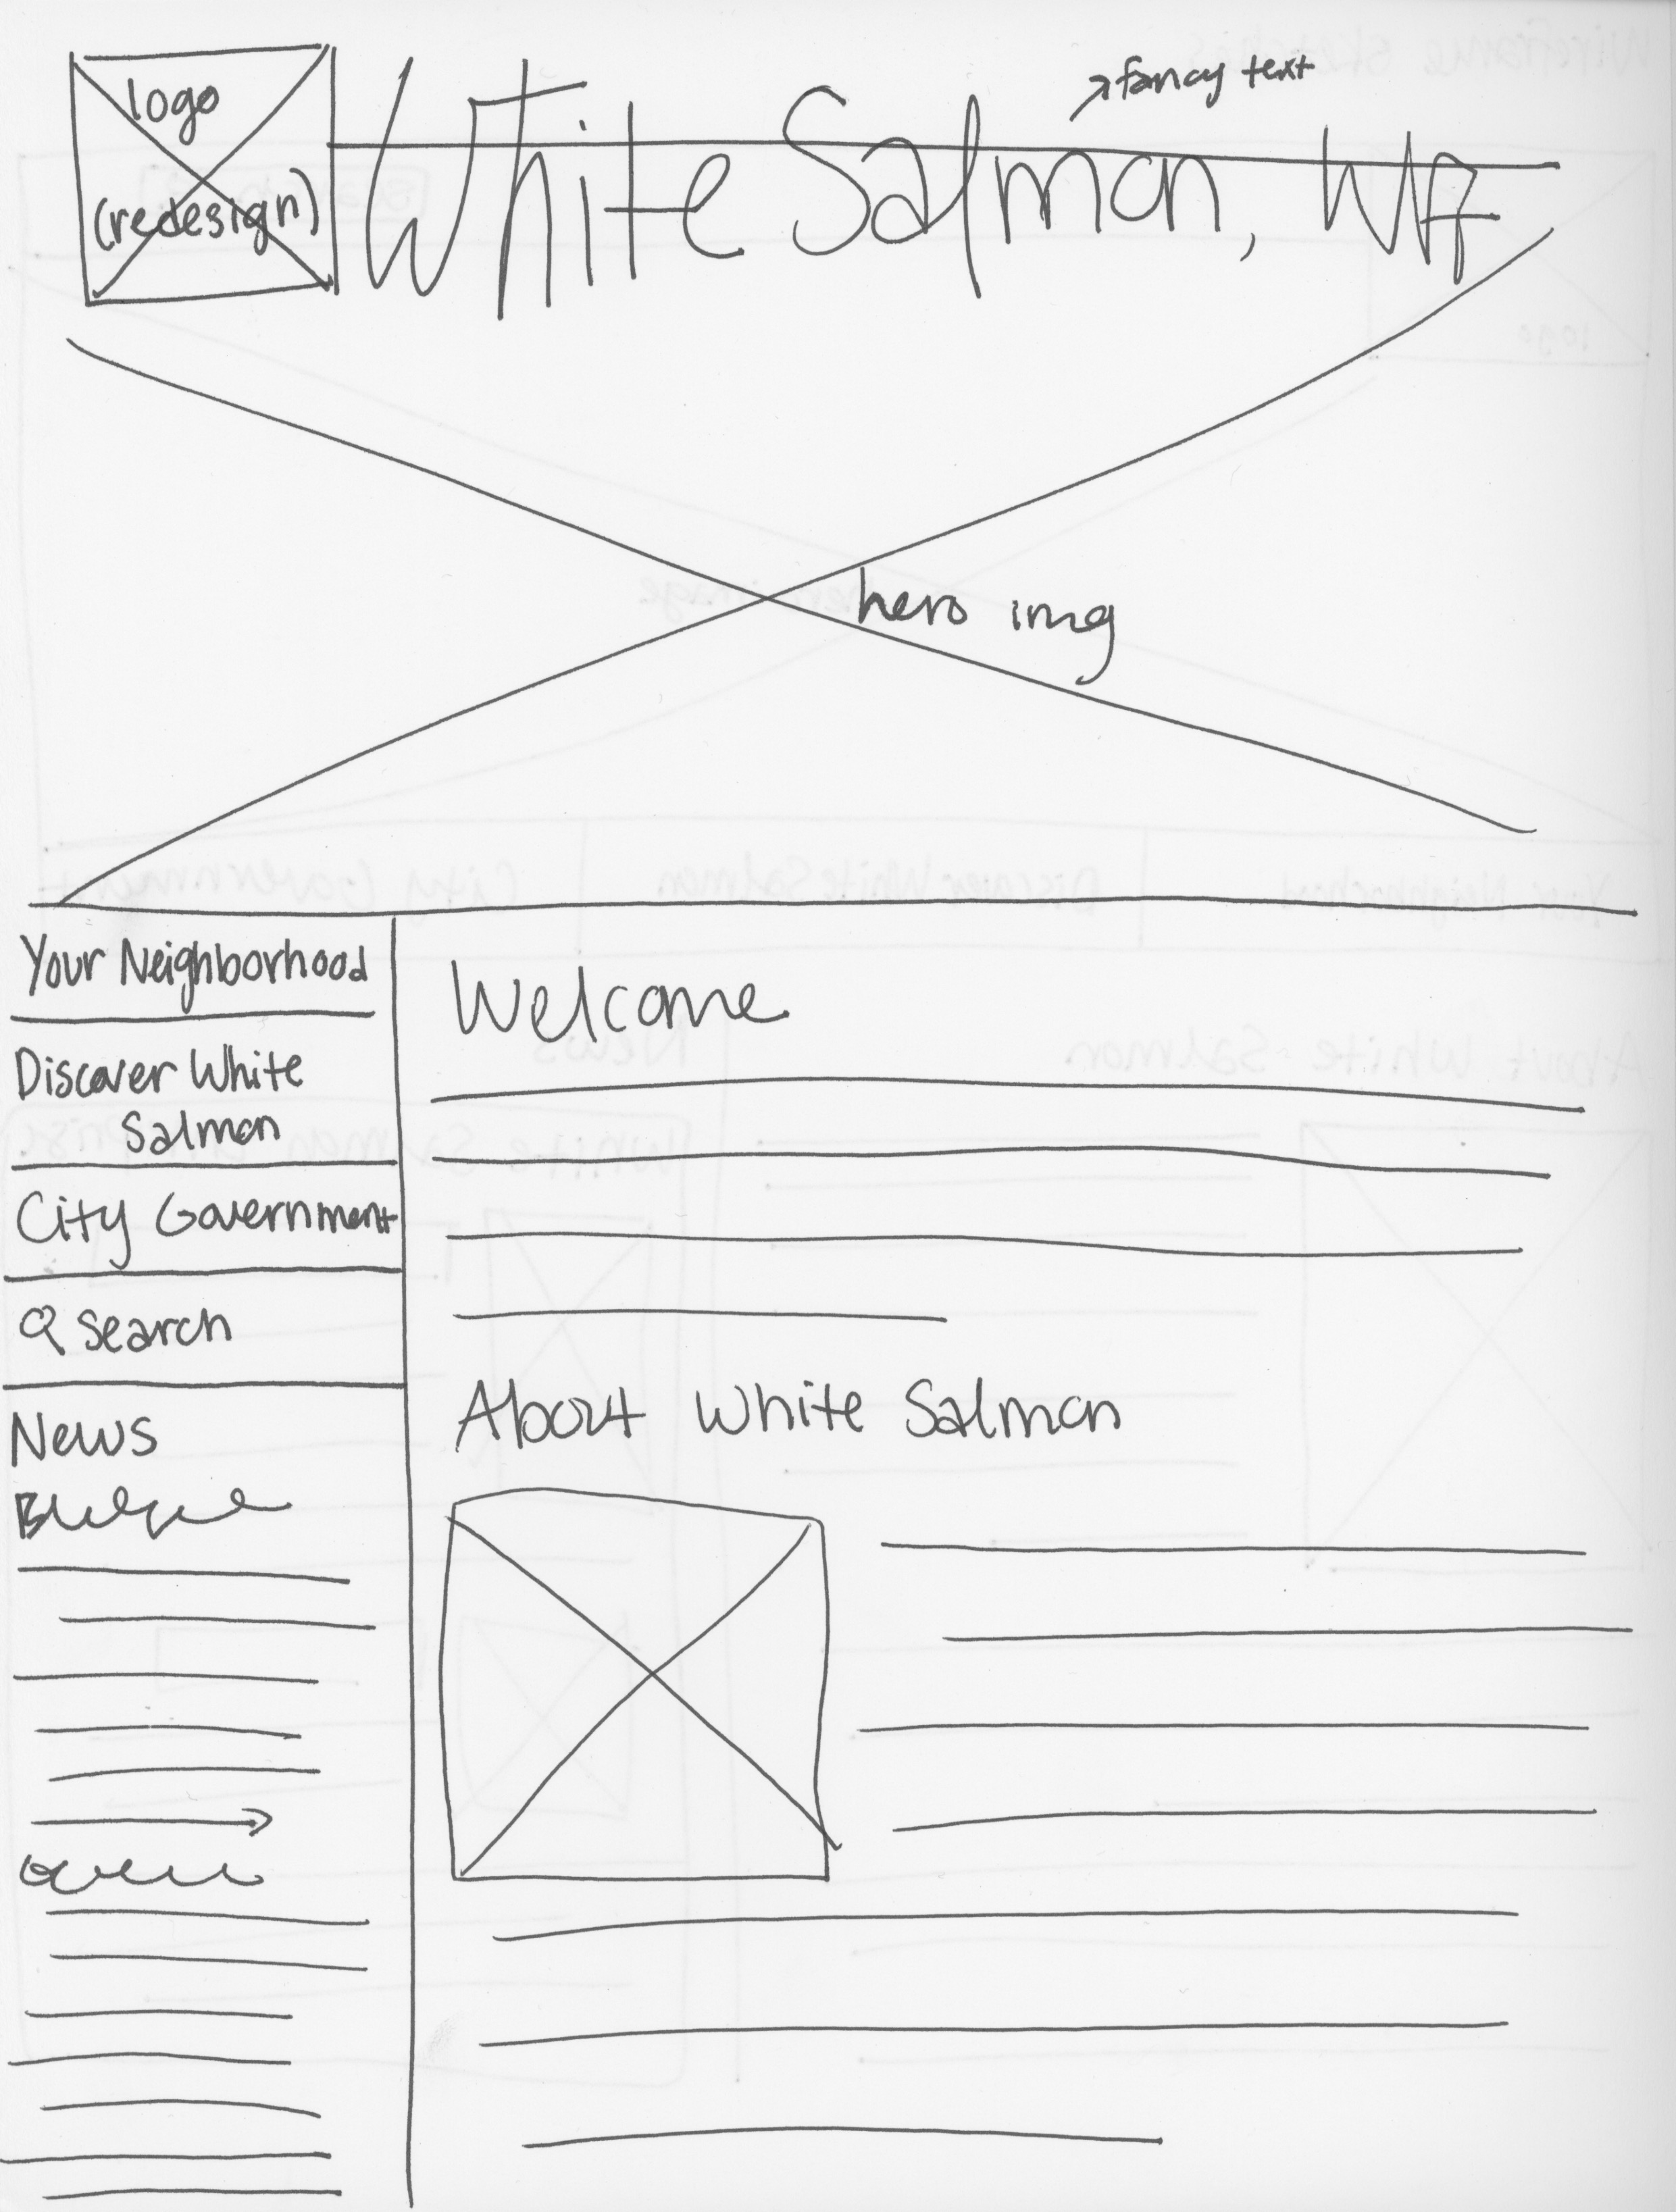 logo
(redesign)
White Salmon, WA
fancy text
hero img
Your Neighborhood
Discover White
Salmon
City Government
search
News
Welcome
About White Salmon